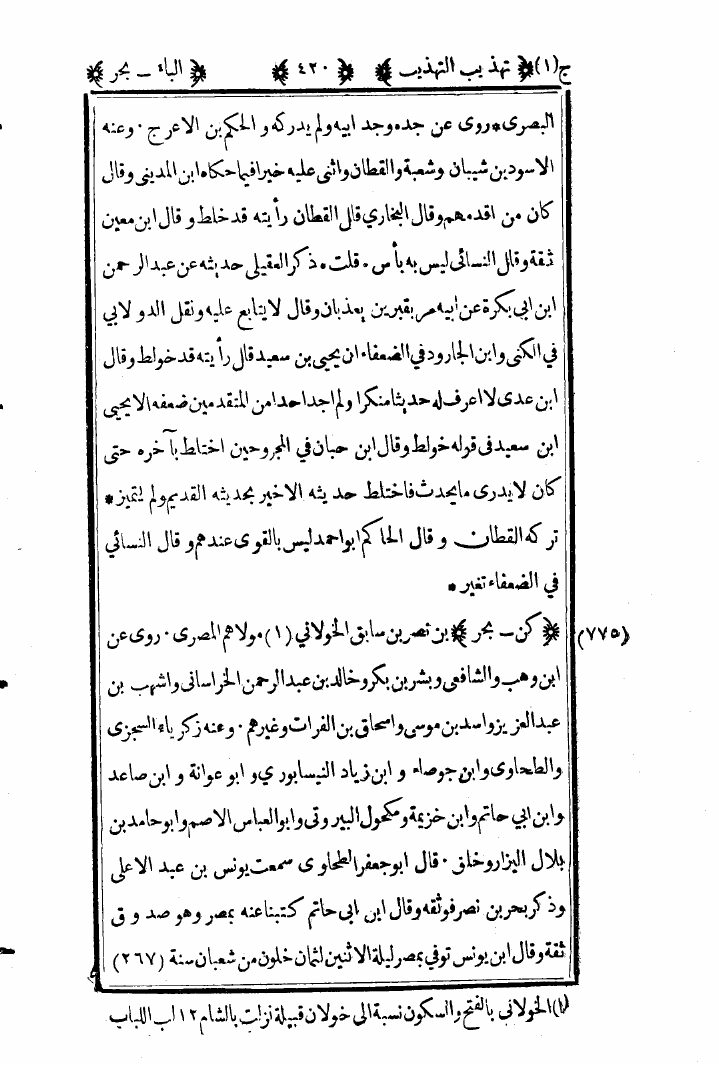 ج(١) ﴿ تهذيب التهذيب ﴾ ﴿ ٤٢٠ ﴾ ﴿ الباء ـ بحر ﴾
البصرى * روى عن جده وجد ابيه ولم يدركه و الحكم بن الاعرج ٠ وعنه
الاسود بن شيبان وشعبة والقطان واثنى عليه خيرا فيما حكاه ابن المديني وقال
كان من اقدمهم وقال البخاري قال القطان رأيته قد خلط و قال ابن معين
ثقة وقال النسائى ليس به بأس ٠ قلت ٠ ذكر العقيلي حديثه عن عبد الرحمن
ابن ابي بكرة عن ابيه مر بقبرين يعذبان وقال لا يتابع عليه ونقل الدولابي
في الكنى وابن الجارود في الضعفاء ان يحيى بن سعيد قال رأيته قد خولط وقال
ابن عدى لا اعرف له حديثا منكرا ولم اجد احدا من المتقدمين ضعفه الا يحيى
ابن سعيد فى قوله خولط وقال ابن حبان في المجروحين اختلط بآخره حتى
كان لا يدرى ما يحدث فاختلط حديثه الاخير بحديثه القديم ولم يتميز *
تركه القطان و قال الحاكم ابو احمد ليس بالقوى عندهم و قال النسائي
في الضعفاء تغير *
(٧٧٥) ﴿ كن ـ بحر ﴾ بن نصر بن سابق الخولاني (١) مولاهم المصرى ٠ روى عن
ابن وهب والشافعى وبشر بن بكر وخالد بن عبد الرحمن الخراسانى واشهب بن
عبد العزيز واسد بن موسى واسحاق بن الفرات وغيرهم ٠ وعنه زكرياء السجزى
والطحاوى وابن جوصاء و ابن زياد النيسابوري و ابو عوانة و ابن صاعد
وابن ابي حاتم وابن خزيمة ومكحول البيروتى وابو العباس الاصم وابو حامد بن
بلال البزار وخلق ٠ قال ابو جعفر الطحاوى سمعت يونس بن عبد الاعلى
وذكر بحر بن نصر فوثقه وقال ابن ابى حاتم كتبنا عنه بمصر وهو صدوق
ثقة وقال ابن يونس توفي بمصر ليلة الاثنين لثمان خلون من شعبان سنة (٢٦٧)
(١) الخولاني بالفتح والسكون نسبة الى خولان قبيلة نزلت بالشام ١٢ لب اللباب